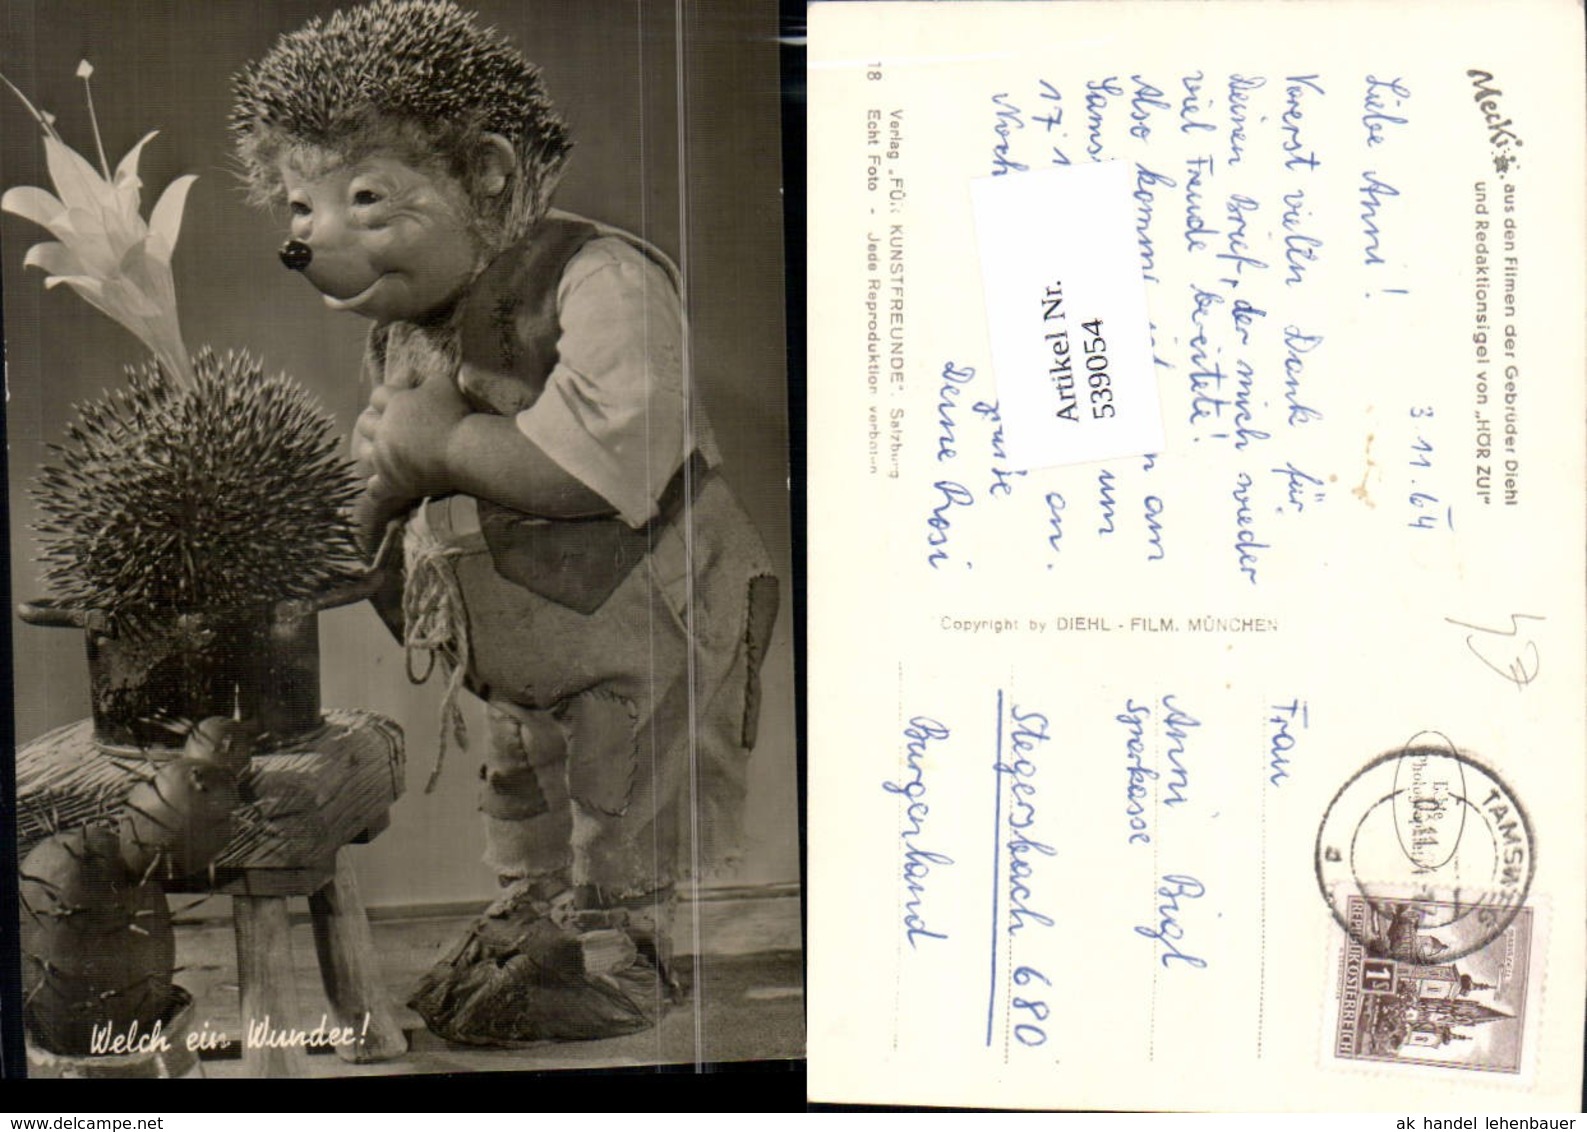 Welch ein Wunder!
Mecki
aus den Filmen der Gebrüder Diehl
und Redaktionsigel von „HÖR ZU!"
3.11.64
Liebe Anni!
Vorerst vielen Dank für
Deinen Brief, der mich wieder
viel Freude bereitete!
Also komm am
Sams um
17 an.
Noch
Deine Rosi
Artikel Nr.
539054
Verlag „FÜR KUNSTFREUNDE". Salzburg
18 Echt Foto - Jede Reproduktion verboten
Copyright by DIEHL - FILM. MÜNCHEN
TAMSWEG
1S
REPUBLIK ÖSTERREICH
Frau
Anni Bigl
Sparkasse
Stegersbach 680
Burgenland
ak handel lehenbauer